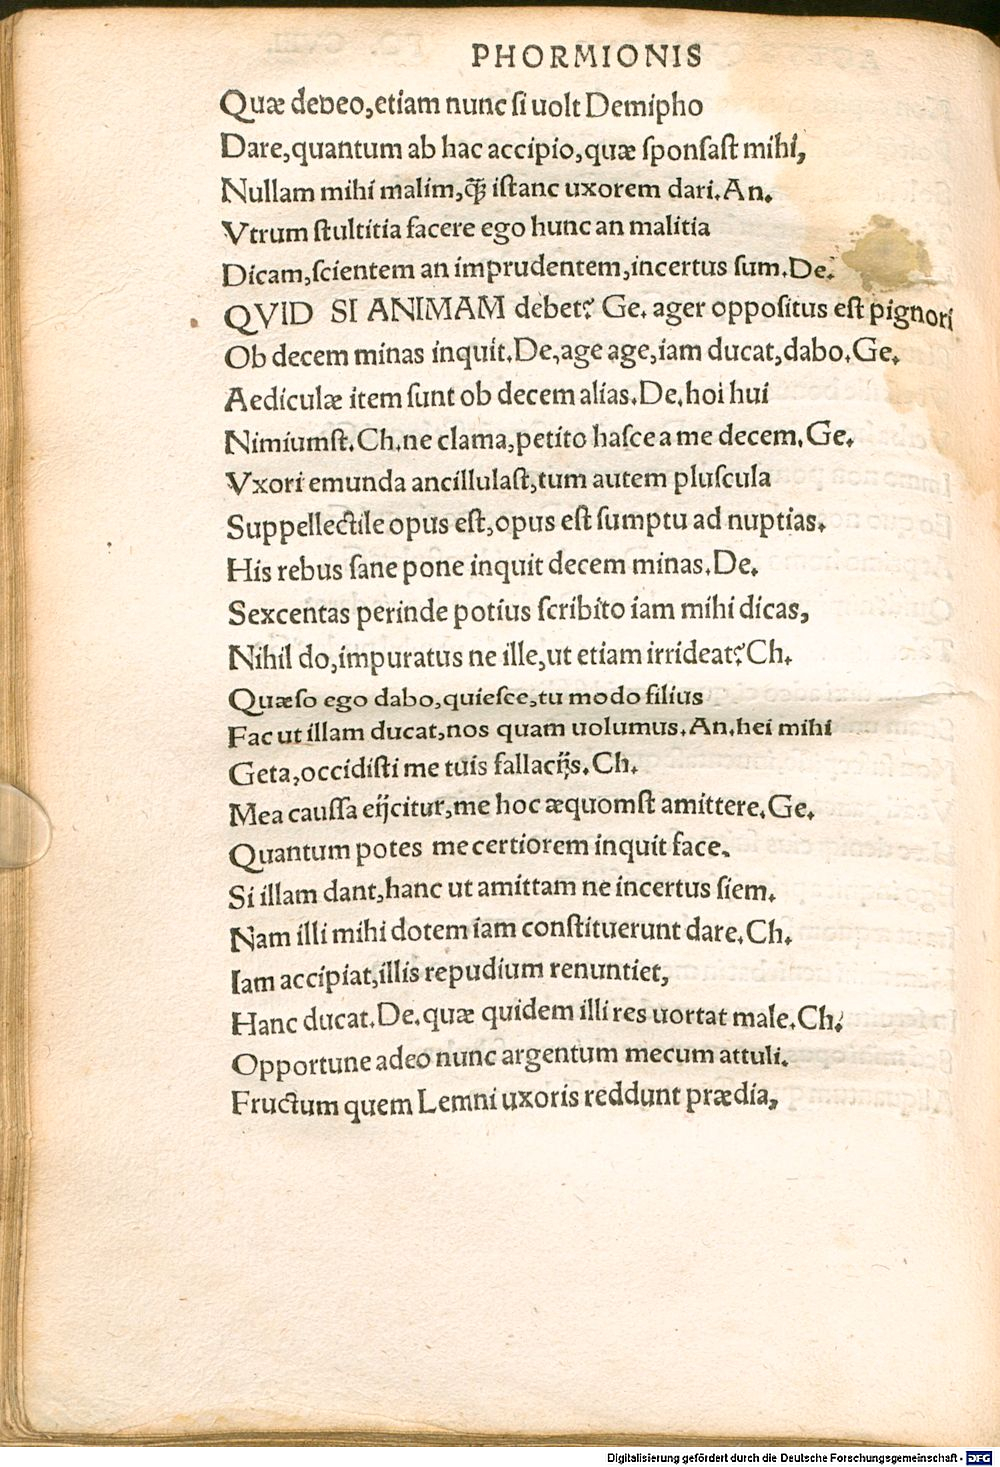 PHORMIONIS
Quæ debeo,etiam nunc ſi uolt Demipho
Dare,quantum ab hac accipio,quæ ſponſaſt mihi,
Nullam mihi malim,ꝙ̃ iſtanc uxorem dari.An.
Vtrum ſtultitia facere ego hunc an malitia
Dicam,ſcientem an imprudentem,incertus ſum.De.
QVID SI ANIMAM debet? Ge. ager oppoſitus eſt pignori
Ob decem minas inquit.De,age age,iam ducat,dabo.Ge.
Aediculæ item ſunt ob decem alias.De.hoi hui
Nimiumſt.Ch.ne clama,petito haſce a me decem.Ge.
Vxori emunda ancillulaſt,tum autem pluſcula
Suppellectile opus eſt,opus eſt ſumptu ad nuptias.
His rebus ſane pone inquit decem minas.De.
Sexcentas perinde potius ſcribito iam mihi dicas,
Nihil do,impuratus ne ille,ut etiam irrideat?Ch.
Quæſo ego dabo,quieſce,tu modo filius
Fac ut illam ducat,nos quam uolumus.An.hei mihi
Geta,occidiſti me tuis fallacijs.Ch.
Mea cauſſa eijcitur,me hoc æquomſt amittere.Ge.
Quantum potes me certiorem inquit face.
Si illam dant,hanc ut amittam ne incertus ſiem.
Nam illi mihi dotem iam conſtituerunt dare.Ch.
Iam accipiat,illis repudium renuntiet,
Hanc ducat.De.quæ quidem illi res uortat male.Ch.
Opportune adeo nunc argentum mecum attuli.
Fructum quem Lemni uxoris reddunt prædia,
Digitalisierung gefördert durch die Deutsche Forschungsgemeinschaft - DFG